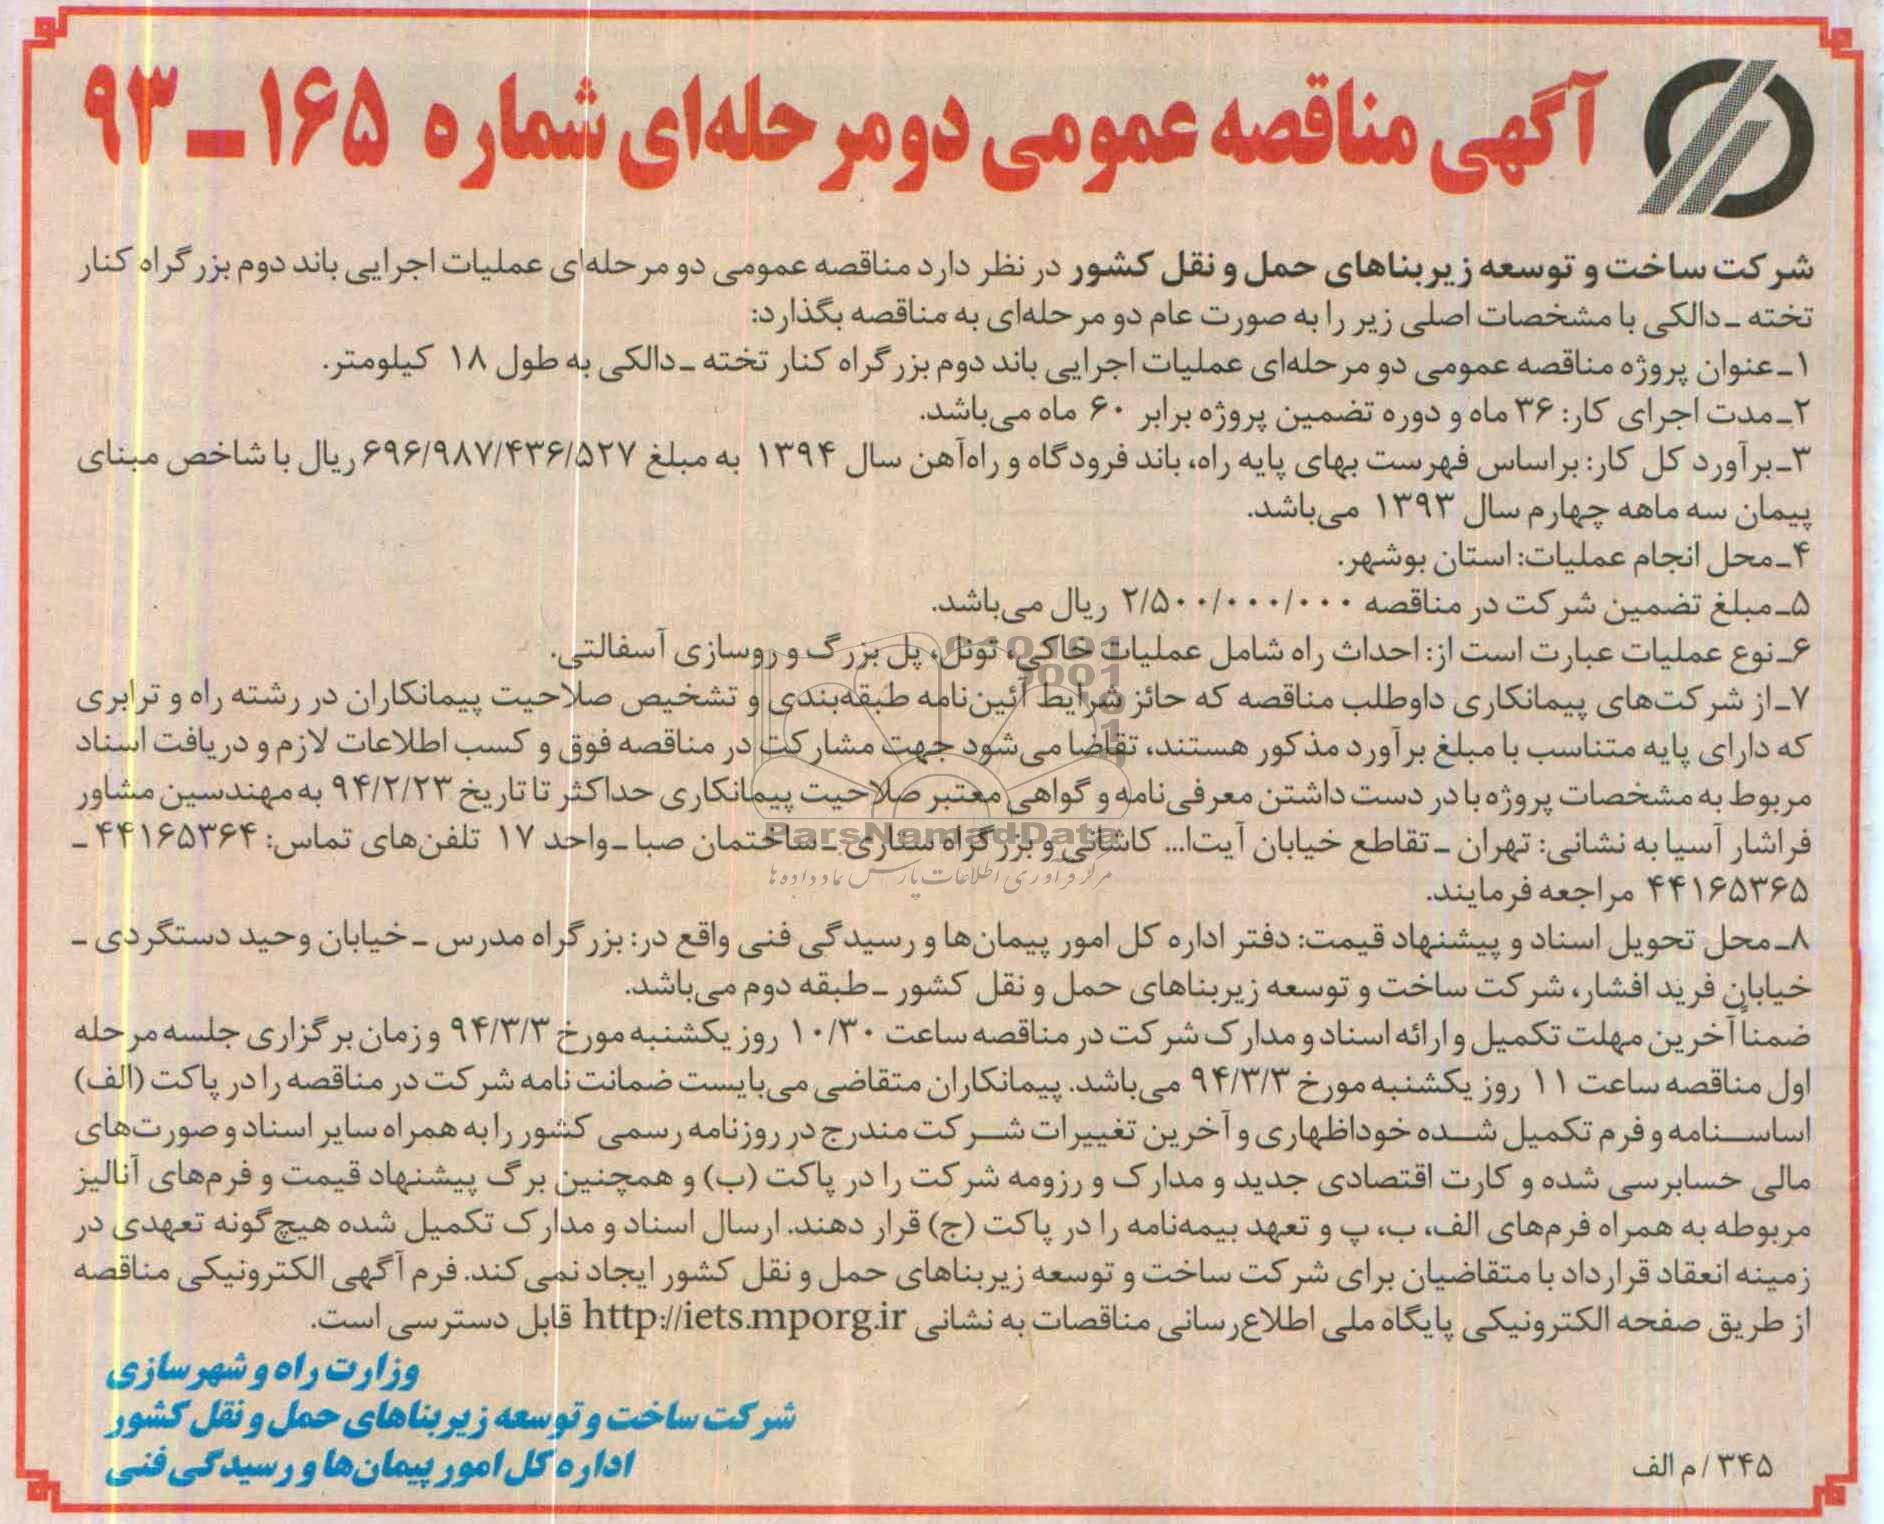 آگهی مناقصه عمومی دو مرحله‌ای شماره ۱۶۵ ـ ۹۳
شرکت ساخت و توسعه زیربناهای حمل و نقل کشور در نظر دارد مناقصه عمومی دو مرحله‌ای عملیات اجرایی باند دوم بزرگراه کنار
تخته ـ دالکی با مشخصات اصلی زیر را به صورت عام دو مرحله‌ای به مناقصه بگذارد:
۱ـ عنوان پروژه مناقصه عمومی دو مرحله‌ای عملیات اجرایی باند دوم بزرگراه کنار تخته ـ دالکی به طول ۱۸ کیلومتر.
۲ـ مدت اجرای کار: ۳۶ ماه و دوره تضمین پروژه برابر ۶۰ ماه می‌باشد.
۳ـ برآورد کل کار: براساس فهرست بهای پایه راه، باند فرودگاه و راه‌آهن سال ۱۳۹۴ به مبلغ ۶۹۶/۹۸۷/۴۳۶/۵۲۷ ریال با شاخص مبنای
پیمان سه ماهه چهارم سال ۱۳۹۳ می‌باشد.
۴ـ محل انجام عملیات: استان بوشهر.
۵ـ مبلغ تضمین شرکت در مناقصه ۲/۵۰۰/۰۰۰/۰۰۰ ریال می‌باشد.
۶ـ نوع عملیات عبارت است از: احداث راه شامل عملیات خاکی، تونل، پل بزرگ و روسازی آسفالتی.
۷ـ از شرکت‌های پیمانکاری داوطلب مناقصه که حائز شرایط آئین‌نامه طبقه‌بندی و تشخیص صلاحیت پیمانکاران در رشته راه و ترابری
که دارای پایه متناسب با مبلغ برآورد مذکور هستند، تقاضا می‌شود جهت مشارکت در مناقصه فوق و کسب اطلاعات لازم و دریافت اسناد
مربوط به مشخصات پروژه با در دست داشتن معرفی‌نامه و گواهی معتبر صلاحیت پیمانکاری حداکثر تا تاریخ ۹۴/۲/۲۳ به مهندسین مشاور
فراشار آسیا به نشانی: تهران ـ تقاطع خیابان آیت‌ا... کاشانی و بزرگراه ستاری ـ ساختمان صبا ـ واحد ۱۷ تلفن‌های تماس: ۴۴۱۶۵۳۶۴ ـ
۴۴۱۶۵۳۶۵ مراجعه فرمایند.
ParsNamadData
مرکز فرآوری اطلاعات پارس نماد داده‌ها
۸ـ محل تحویل اسناد و پیشنهاد قیمت: دفتر اداره کل امور پیمان‌ها و رسیدگی فنی واقع در: بزرگراه مدرس ـ خیابان وحید دستگردی ـ
خیابان فرید افشار، شرکت ساخت و توسعه زیربناهای حمل و نقل کشور ـ طبقه دوم می‌باشد.
ضمناً آخرین مهلت تکمیل و ارائه اسناد و مدارک شرکت در مناقصه ساعت ۱۰/۳۰ روز یکشنبه مورخ ۹۴/۳/۳ و زمان برگزاری جلسه مرحله
اول مناقصه ساعت ۱۱ روز یکشنبه مورخ ۹۴/۳/۳ می‌باشد. پیمانکاران متقاضی می‌بایست ضمانت نامه شرکت در مناقصه را در پاکت (الف)
اساسنامه و فرم تکمیل شده خوداظهاری و آخرین تغییرات شرکت مندرج در روزنامه رسمی کشور را به همراه سایر اسناد و صورت‌های
مالی حسابرسی شده و کارت اقتصادی جدید و مدارک و رزومه شرکت را در پاکت (ب) و همچنین برگ پیشنهاد قیمت و فرم‌های آنالیز
مربوطه به همراه فرم‌های الف، ب، پ و تعهد بیمه‌نامه را در پاکت (ج) قرار دهند. ارسال اسناد و مدارک تکمیل شده هیچ‌گونه تعهدی در
زمینه انعقاد قرارداد با متقاضیان برای شرکت ساخت و توسعه زیربناهای حمل و نقل کشور ایجاد نمی‌کند. فرم آگهی الکترونیکی مناقصه
از طریق صفحه الکترونیکی پایگاه ملی اطلاع‌رسانی مناقصات به نشانی http://iets.mporg.ir قابل دسترسی است.
وزارت راه و شهرسازی
شرکت ساخت و توسعه زیربناهای حمل و نقل کشور
اداره کل امور پیمان‌ها و رسیدگی فنی
۳۴۵/ م الف